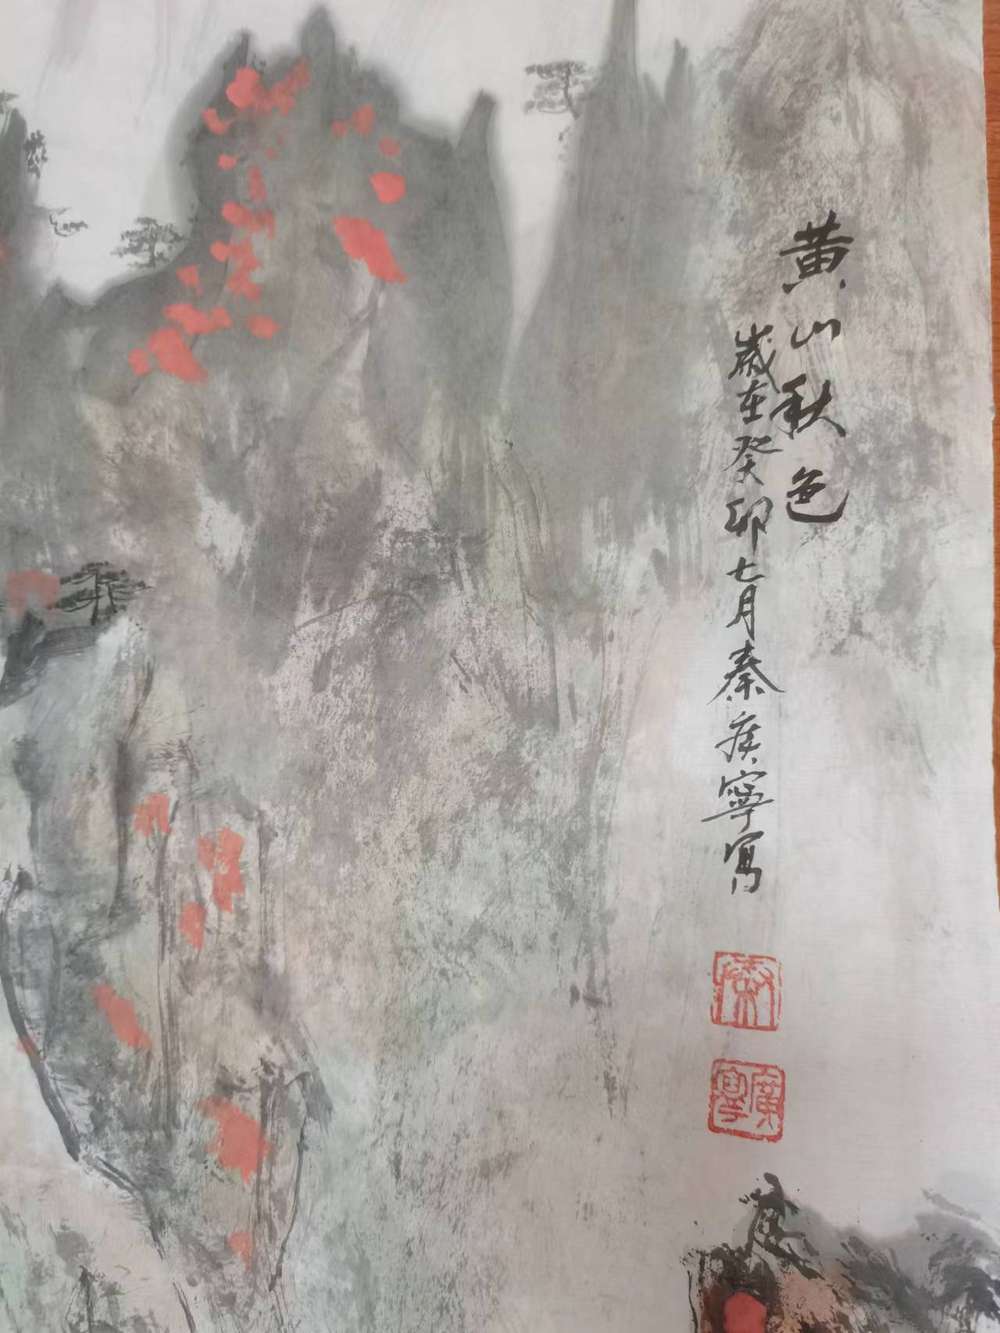 黄山秋色
歲在癸卯七月秦廣寧寫
廣寧